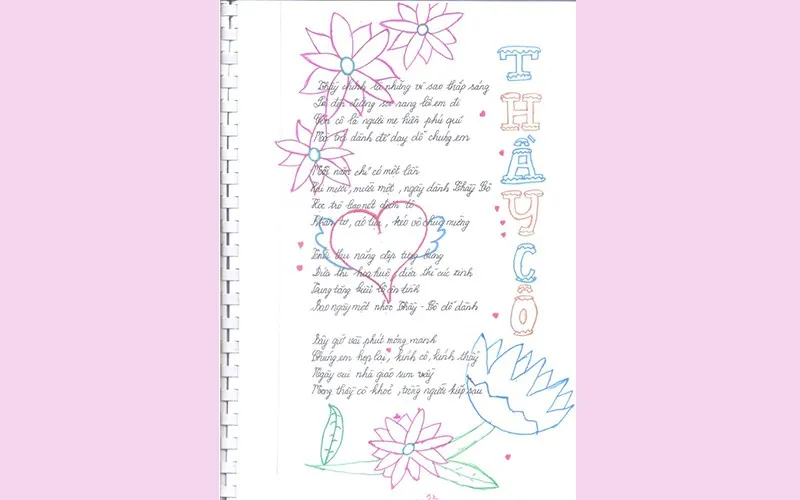 Thầy chính là những vì sao thắp sáng
đẹp đường soi rạng lối em đi
Còn cô là người mẹ hiền phú quí
trời dành để dạy dỗ chúng em
Mỗi năm chỉ có một lần
Hai mươi, mười một, ngày dành Thầy Cô
Học trò bao nét điểm tô
vỗ chúc mừng
thu nắng đẹp tưng bừng
Đứa thì hoa huệ, đứa thì cúc xinh
Trung tặng bưởi
Bao ngày một nhóc Thầy - Cô dỗ dành
Bây giờ vài phút mỏng manh
Chúng em họp lại, kính cô, kính thầy
Ngày vui nhà giáo sum vầy
Mong thầy cô khoẻ, trồng người kiếp sau
THẦY CÔ